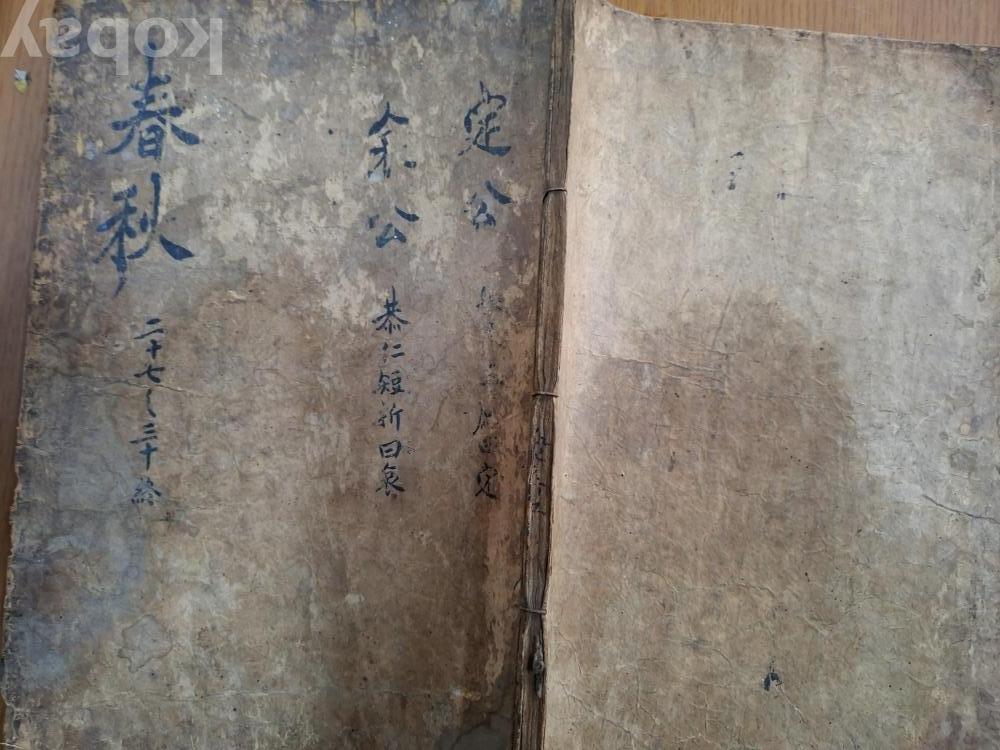 定公
哀公 恭仁短折曰哀
春秋 二十七之三十 終
kobay